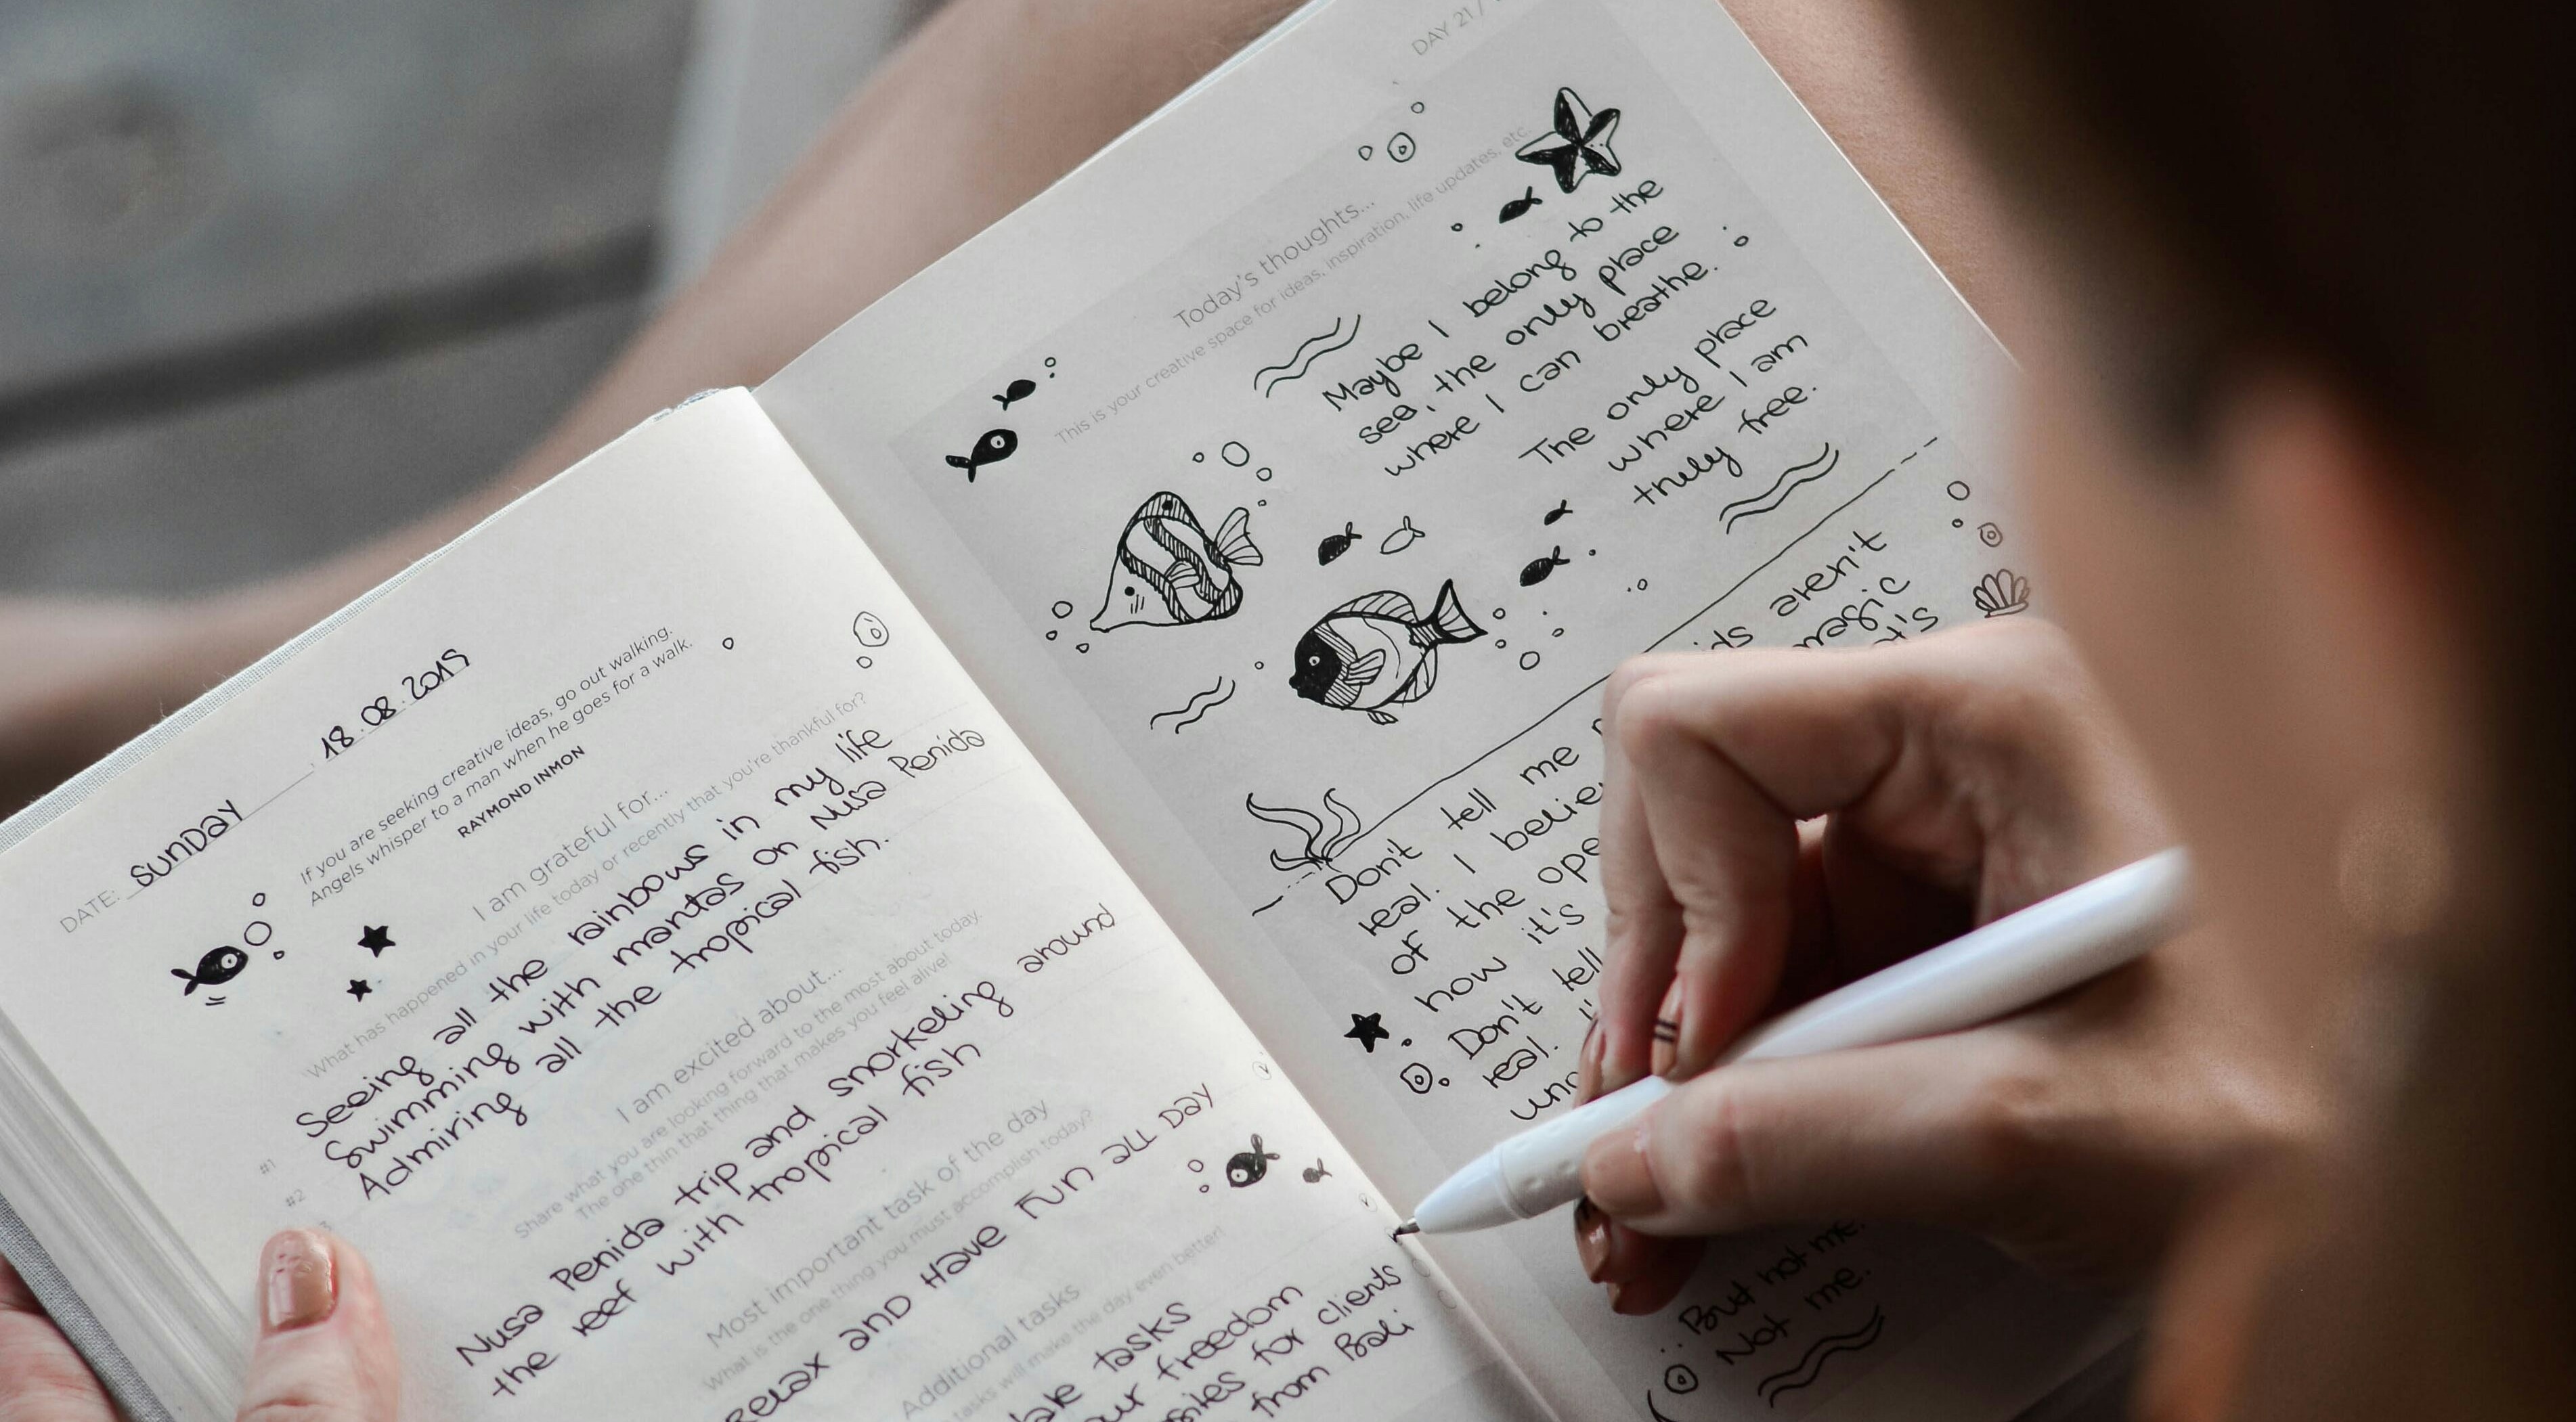 DATE: SUNDAY 18.08.2019
If you are seeking creative ideas, go out walking.
Angels whisper to a man when he goes for a walk.
RAYMOND INMON
I am grateful for...
What has happened in your life today or recently that you're thankful for?
#1 Seeing all the rainbows in my life
#2 Swimming with mantas on Nusa Penida
3 Admiring all the tropical fish.
I am excited about...
Share what you are looking forward to the most about today.
The one thin that thing that makes you feel alive!
Nusa Penida trip and snorkeling around
the reef with tropical fish
Most important task of the day
What is the one thing you must accomplish today?
Relax AND HAVE FUN ALL DAY
Additional tasks
tasks will make the day even better!
tasks
freedom
for clients
from Bali
DAY 21 /
Today's thoughts...
This is your creative space for ideas, inspiration, life updates, etc.
Maybe I belong to the
sea, the only place
where I can breathe.
The only place
where I am
truly free.
Don't tell me aren't
real. I magic
of the
how it's
Don't tell
real.
But not me.
Not me.